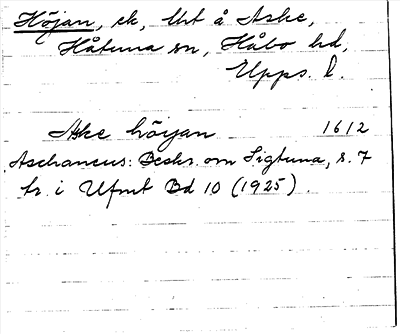 Höjan, ek, Urt å Aske,
Håtuna sn, Håbo hd,
Upps. l.
Aske höijan 1612
Aschaneus: Beskr. om Sigtuna, s. 7
tr. i Ufmt Bd 10 (1925).